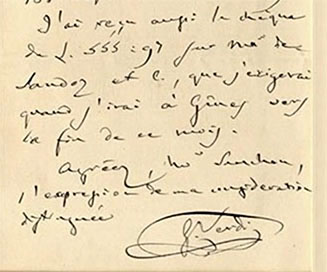 J'ai reçu aussi le chèque
de L. 555:97 sur Mr de
Sandoz et C., que j'exigerai
quand j'irai à Gênes vers
la fin de ce mois.
Agréez, Mr
l'expression de ma consideration
distinguée
G. Verdi